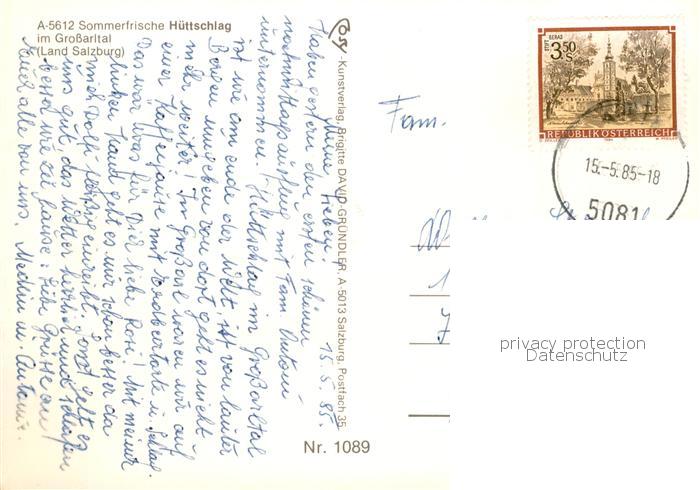 A-5612 Sommerfrische Hüttschlag
im Großarltal
(Land Salzburg)
Meine Lieben! 15.5.85.
Haben gestern den ersten schönen
nachmittags ausflug mit Fam.
unternommen. Hüttschlag im Großarltal
ist wie am ende der Welt, ist von lauter
Bergen umgeben von dort geht es nicht
mehr weiter! In Großarl waren wir auf
einer Kaffeejause mit u. Schlag.
Das wär was für Dich liebe Rosi! Mit meiner
linken Hand geht es mir schon besser da
mich fleißig einreibt. Sonst geht es
uns gut, das Wetter herrlich und schlafen
besser wie zu Hause. Liebe Grüße an
Euch alle von uns. u.
Kunstverlag, Brigitte DAVID-GRÜNDLER, A-5013 Salzburg, Postfach 35
Nr. 1089
Fam.
STIFT GERAS
3.50
S
REPUBLIK ÖSTERREICH
15.-5.85-18
5081
privacy protection
Datenschutz